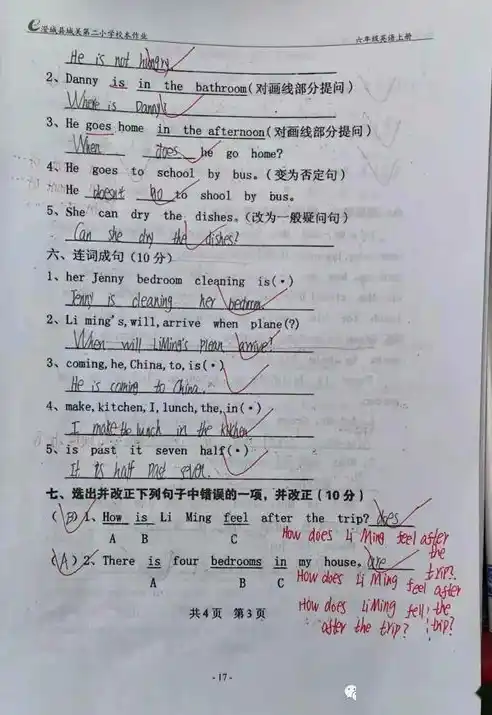 e澄城县城关第二小学校本作业 六年级英语上册
He is not hungry.
2、Danny is in the bathroom(对画线部分提问)
Where is Danny?
3、He goes home in the afternoon(对画线部分提问)
When does he go home?
4、He goes to school by bus。(变为否定句)
He doesn't go to shool by bus.
5、She can dry the dishes。(改为一般疑问句)
Can she dry the dishes?
六、连词成句(10分)
1、her Jenny bedroom cleaning is(·)
Jenny is cleaning her bedroom.
2、Li ming's,will,arrive when plane(?)
When will LiMing's plean arrive?
3、coming,he,China,to,is(·)
He is coming to China.
4、make,kitchen,I,lunch,the,in(·)
I make the lunch in the kitchen.
5、is past it seven half(·)
It is half past seven.
七、选出并改正下列句子中错误的一项，并改正(10分)
(B)1、How is Li Ming feel after the trip? does
A B C
How does Li Ming feel after the trip?
(A)2、There is four bedrooms in my house. are
A B C
How does Li Ming feel after the trip?
How does LiMing fell after the trip?
共4页 第3页
- 17 -